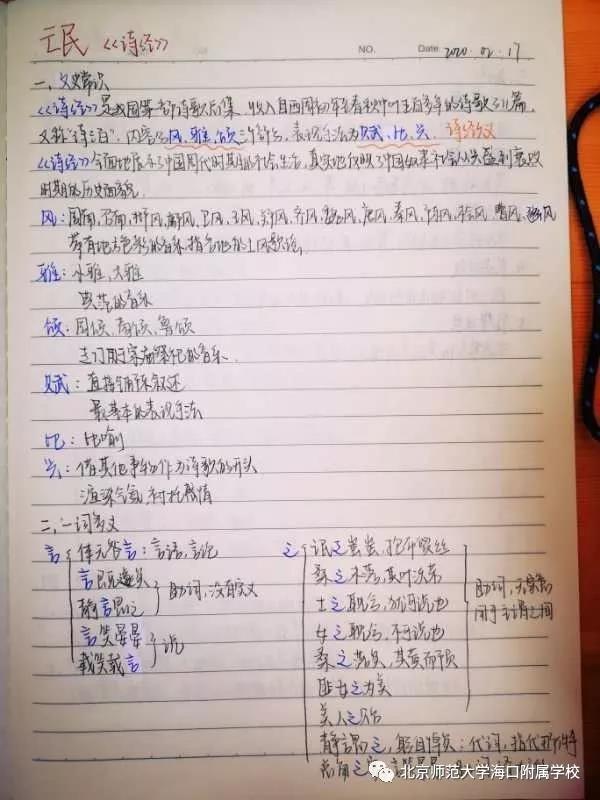 氓《诗经》
NO.
Date. 2020.02.17
一、文史常识
《诗经》是我国第一部诗歌总集，收入自西周初年至春秋中叶五百多年的诗歌311篇，
又称"诗三百"。内容分风、雅、颂三个部分，表现手法为赋、比、兴。诗经六义
《诗经》全面地展示了中国周代时期的社会生活，真实地反映了中国奴隶社会从兴盛到衰败
时期的历史面貌
风：周南、召南、邶风、鄘风、卫风、王风、郑风、齐风、魏风、唐风、秦风、陈风、桧风、曹风、豳风
带有地方色彩的音乐，指各地的土风歌谣
雅：小雅、大雅
典范的音乐
颂：周颂、商颂、鲁颂
用于宗庙祭祀的音乐
赋：直接铺陈叙述
最基本的表现手法
比：比喻
兴：借其他事物作为诗歌的开头
渲染气氛，衬托感情
二、一词多义
言
体无咎言：言语，言论
言既遂矣
静言思之
助词，没有实义
言笑晏晏
载笑载言
说
之
氓之蚩蚩，抱布贸丝
桑之未落，其叶沃若
士之耽兮，犹可说也
女之耽兮，不可说也
桑之落矣，其黄而陨
匪女之为美
美人之贻
助词，无实义
用于主谓之间
静言思之，躬自悼矣：代词，指代
总角之
北京师范大学海口附属学校